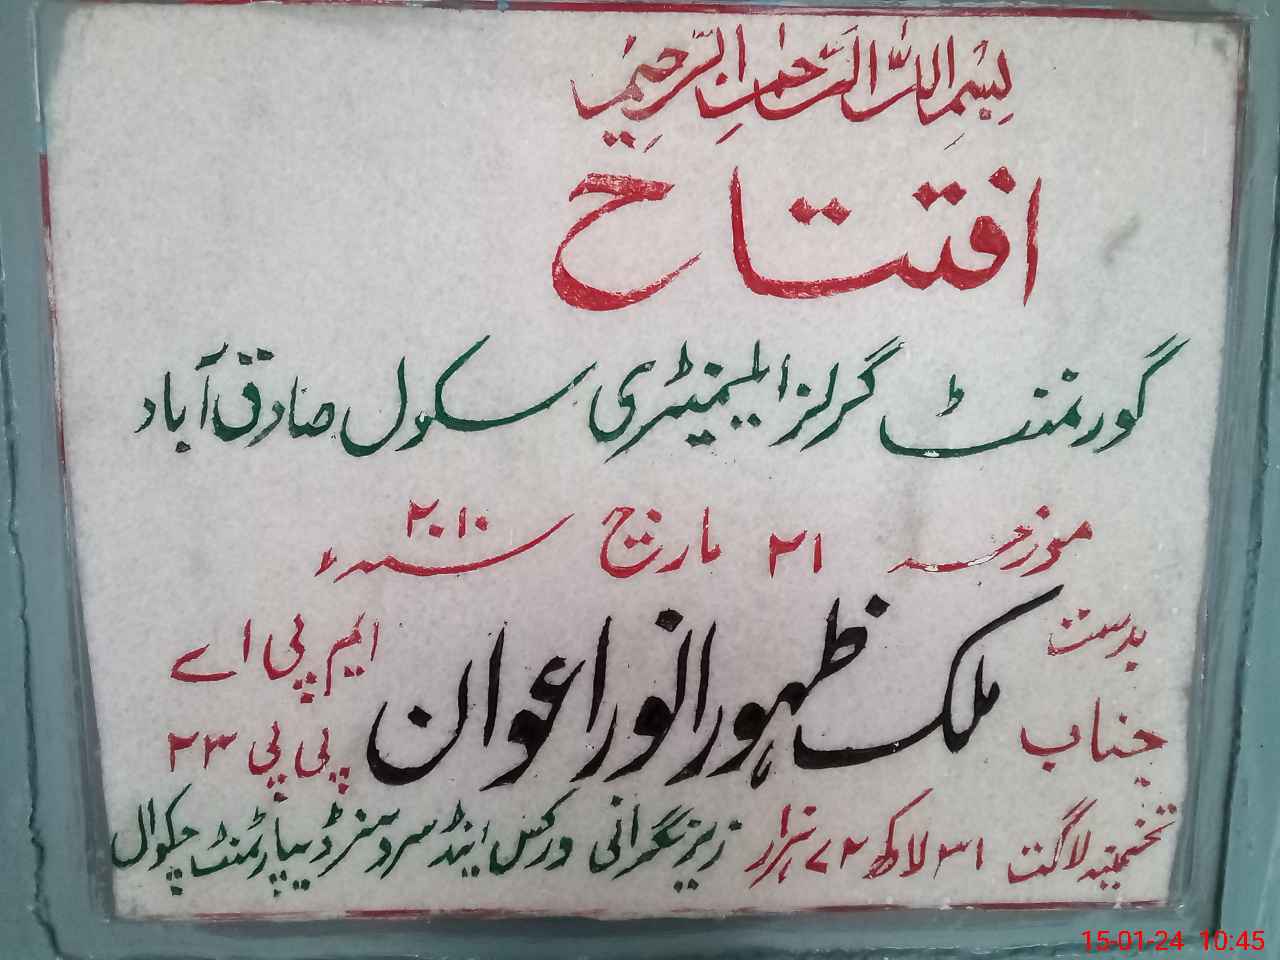 بِسْمِ اللہِ الرَّحْمٰنِ الرَّحِیْمِ
افتتاح
گورنمنٹ گرلز ایلیمنٹری سکول صادق آباد
مورخہ ۲۱ مارچ ۲۰۱۰ سنہء
بدست جناب ملک ظہور انور اعوان ایم پی اے پی پی ۲۳
تخمینہ لاگت ۳۱ لاکھ ۷۲ ہزار زیر نگرانی ورکس اینڈ سروسز ڈیپارٹمنٹ چکوال
15-01-24 10:45